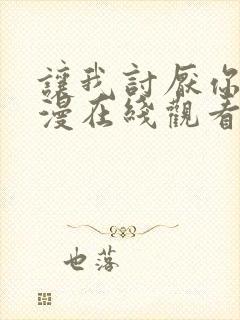 讓我討厭你
漫在綫觀看
也落